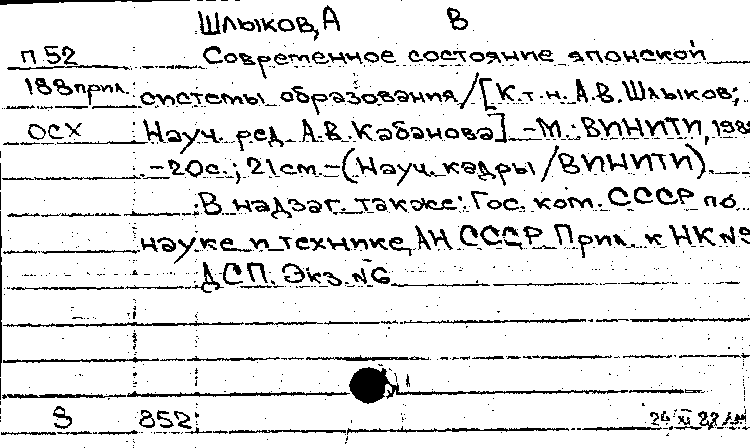 Шлыков, А В
П 52 Современное состояние японской
188 прил. системы образования / [К.т.н. А.В. Шлыков;
ОСХ Науч. ред. А.В. Кабанова] - М.: ВИНИТИ, 198
- 20 с.; 21 см - (Науч. кадры / ВИНИТИ).
В надзаг. также: Гос. ком. СССР по
науке и технике, АН СССР. Прил. к НК №
ДСП. Экз. №6
852